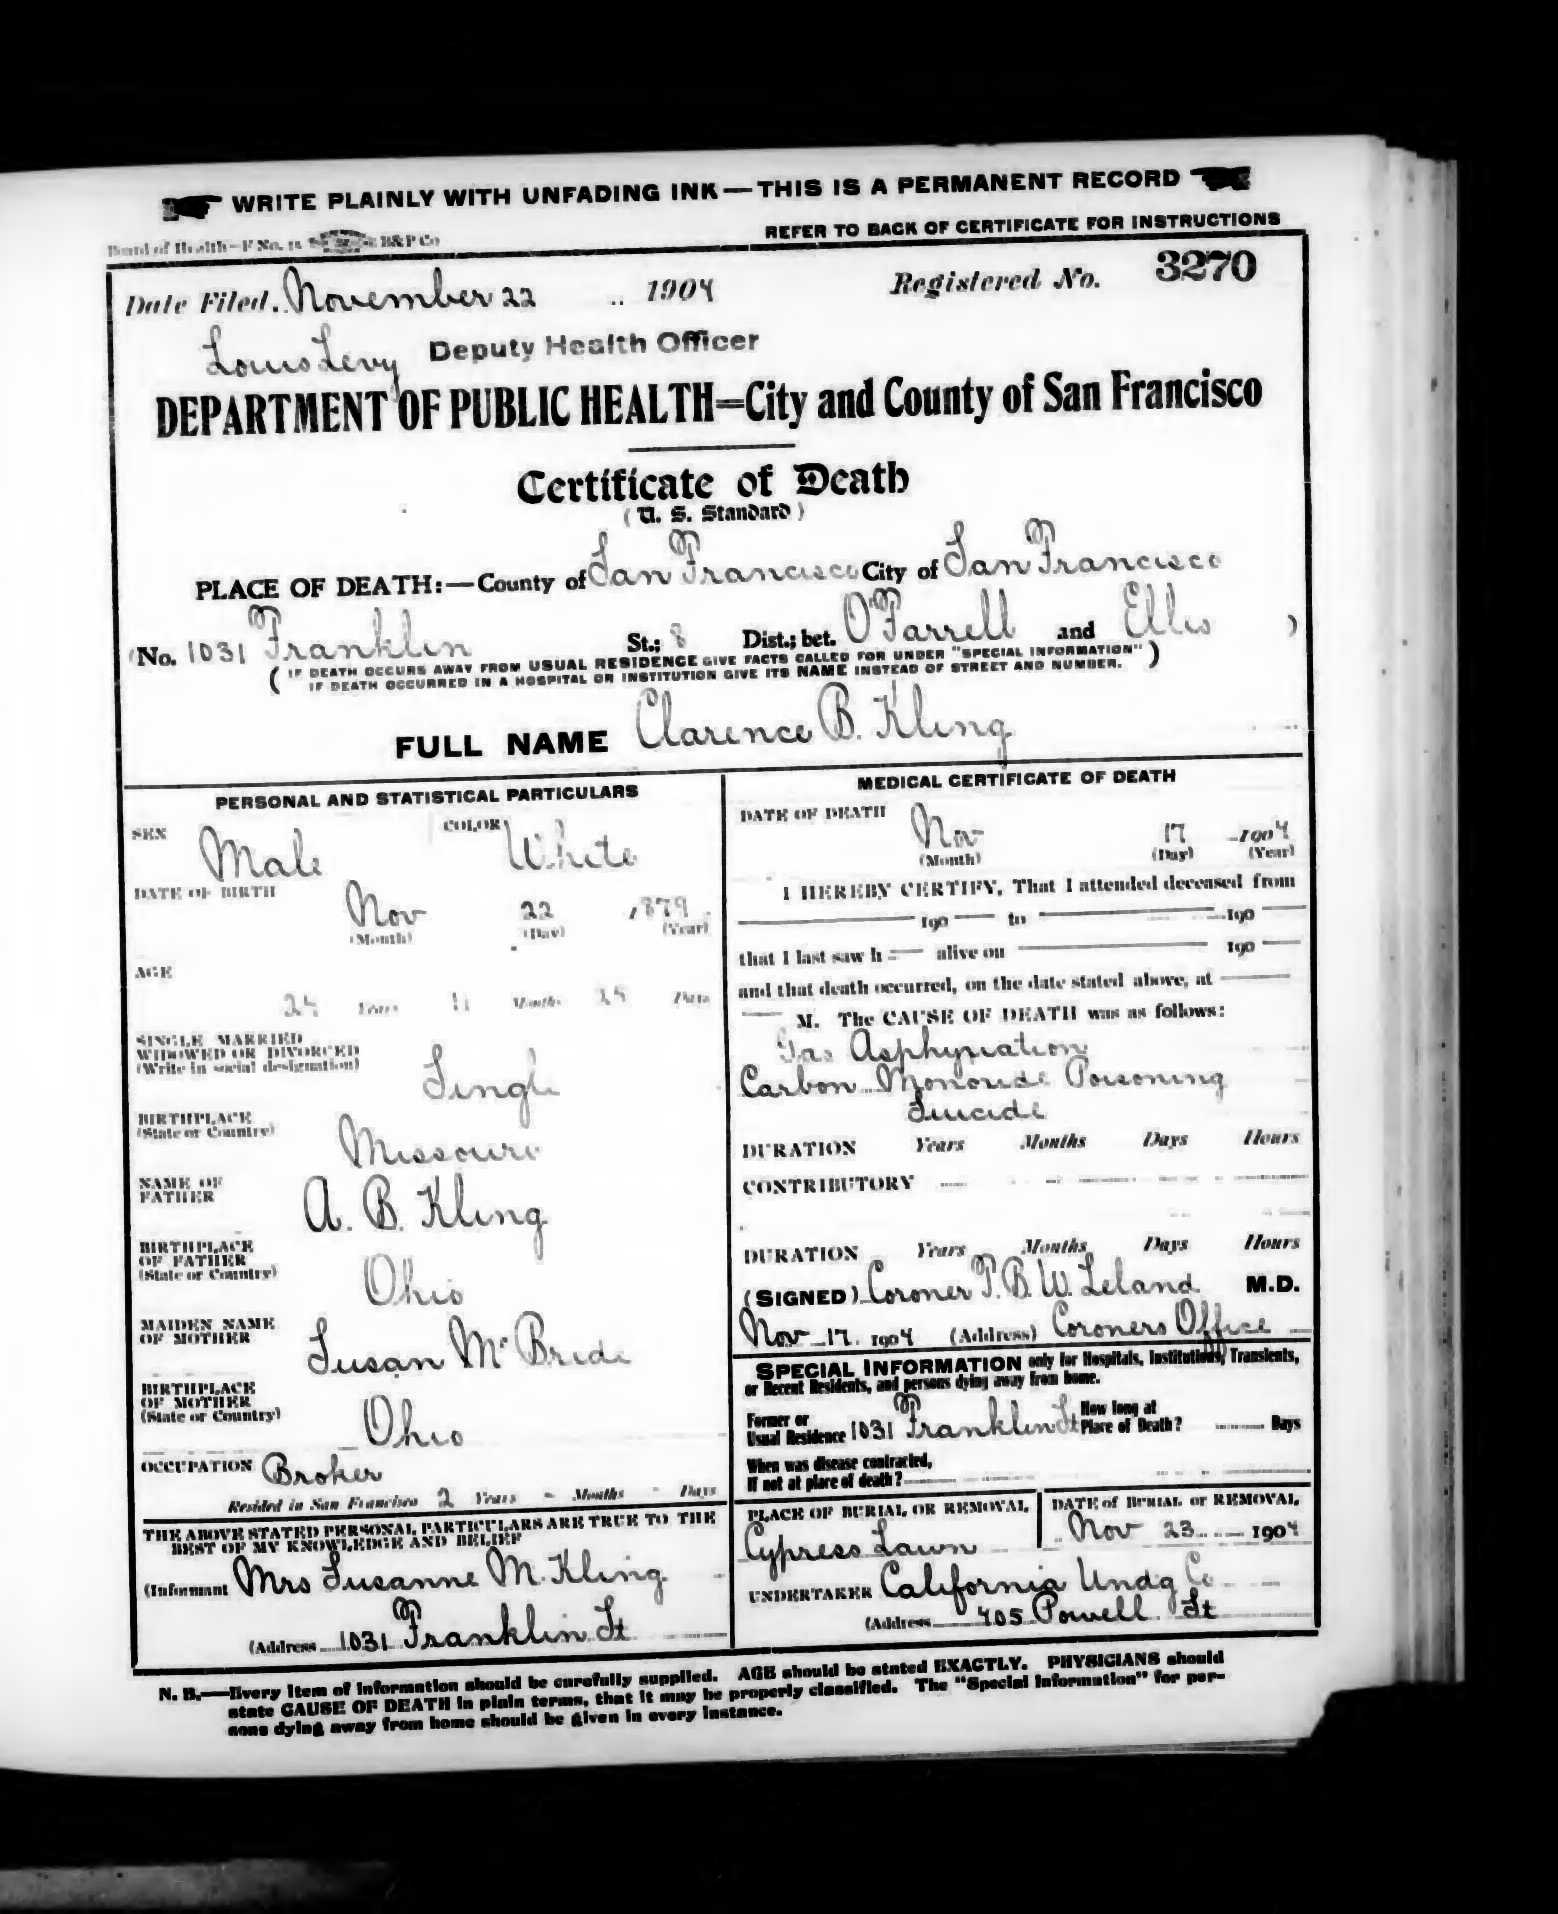 WRITE PLAINLY WITH UNFADING INK — THIS IS A PERMANENT RECORD
Board of Health—F No. 11 B&P Co
REFER TO BACK OF CERTIFICATE FOR INSTRUCTIONS
Date Filed. November 22 1904 Registered No. 3270
Louis Levy Deputy Health Officer
DEPARTMENT OF PUBLIC HEALTH=City and County of San Francisco
Certificate of Death
(U. S. Standard)
PLACE OF DEATH:—County of San Francisco City of San Francisco
(No. 1031 Franklin St.; 8 Dist.; bet. O'Farrell and Ellis )
( IF DEATH OCCURS AWAY FROM USUAL RESIDENCE GIVE FACTS CALLED FOR UNDER "SPECIAL INFORMATION" )
IF DEATH OCCURRED IN A HOSPITAL OR INSTITUTION GIVE ITS NAME INSTEAD OF STREET AND NUMBER.
FULL NAME Clarence B. Kling
PERSONAL AND STATISTICAL PARTICULARS
SEX Male COLOR White
DATE OF BIRTH
Nov 22 1879
(Month) (Day) (Year)
AGE
24 Years 11 Months 25 Days
SINGLE MARRIED
WIDOWED OR DIVORCED
(Write in social designation) Single
BIRTHPLACE
(State or Country) Missouri
NAME OF
FATHER A. B. Kling
BIRTHPLACE
OF FATHER
(State or Country) Ohio
MAIDEN NAME
OF MOTHER Susan McBride
BIRTHPLACE
OF MOTHER
(State or Country) Ohio
OCCUPATION Broker
Resided in San Francisco 2 Years - Months - Days
THE ABOVE STATED PERSONAL PARTICULARS ARE TRUE TO THE
BEST OF MY KNOWLEDGE AND BELIEF
(Informant Mrs Susanne M. Kling
(Address 1031 Franklin St
MEDICAL CERTIFICATE OF DEATH
DATE OF DEATH
Nov 17 1904
(Month) (Day) (Year)
I HEREBY CERTIFY, That I attended deceased from
190 to 190
that I last saw h alive on 190
and that death occurred, on the date stated above, at
M. The CAUSE OF DEATH was as follows:
Gas Asphyxiation
Carbon Monoxide Poisoning
Suicide
DURATION Years Months Days Hours
CONTRIBUTORY
DURATION Years Months Days Hours
(SIGNED) Coroner T. B. W. Leland M.D.
Nov 17. 1904 (Address) Coroners Office
SPECIAL INFORMATION only for Hospitals, Institutions, Transients,
or Recent Residents, and persons dying away from home.
Former or
Usual Residence 1031 Franklin St How long at
Place of Death? Days
When was disease contracted,
If not at place of death?
PLACE OF BURIAL OR REMOVAL
Cypress Lawn
DATE of BURIAL or REMOVAL
Nov 23 1904
UNDERTAKER California Undg Co
(Address 405 Powell St
N. B.—Every item of information should be carefully supplied. AGE should be stated EXACTLY. PHYSICIANS should
state CAUSE OF DEATH in plain terms, that it may be properly classified. The "Special Information" for per-
sons dying away from home should be given in every instance.